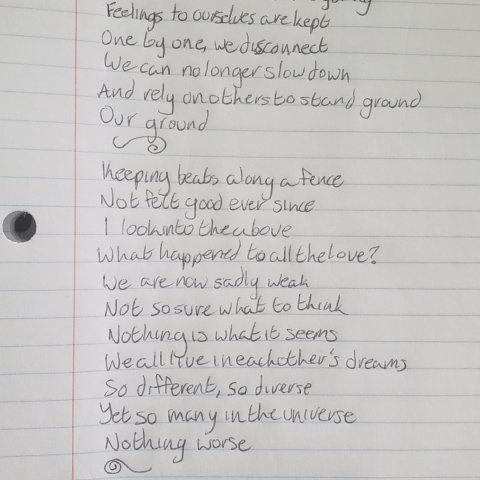 Feelings to ourselves are kept
One by one, we disconnect
We can no longer slow down
And rely on others to stand ground
Our ground
Keeping beabs along a fence
Not felt good ever since
I look into the above
What happened to all the love?
We are now sadly weak
Not so sure what to think
Nothing is what it seems
We all live in each other's dreams
So different, so diverse
Yet so many in the universe
Nothing worse